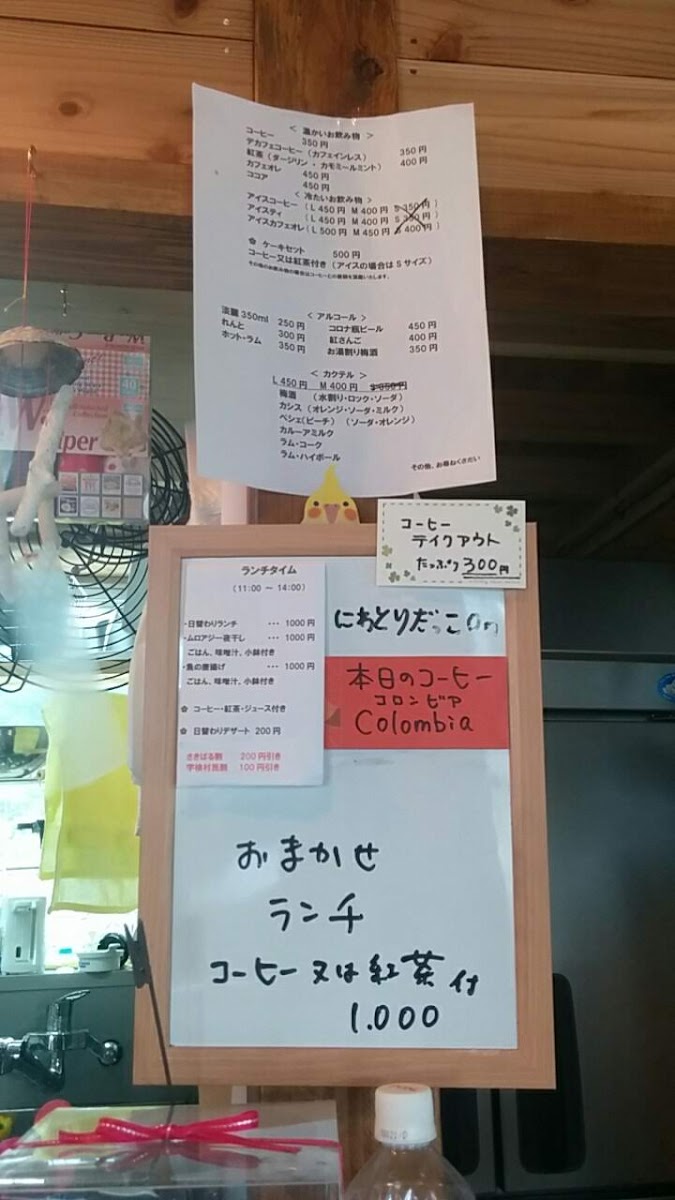 < 温かいお飲み物 >
コーヒー 350円
デカフェコーヒー (カフェインレス) 350円
紅茶 (ダージリン・カモミールミント) 400円
カフェオレ 450円
ココア 450円
< 冷たいお飲み物 >
アイスコーヒー (L 450円 M 400円 S 350円)
アイスティ (L 450円 M 400円 S 350円)
アイスカフェオレ (L 500円 M 450円 S 400円)
✿ ケーキセット 500円
コーヒー又は紅茶付き (アイスの場合はSサイズ)
その他のお飲み物の場合はコーヒーとの差額を頂戴いたします。
< アルコール >
淡麗 350ml 250円 コロナ瓶ビール 450円
れんと 300円 紅さんご 400円
ホット・ラム 350円 お湯割り梅酒 350円
< カクテル >
L 450円 M 400円 S 350円
梅酒 (水割り・ロック・ソーダ)
カシス (オレンジ・ソーダ・ミルク)
ペシェ(ピーチ) (ソーダ・オレンジ)
カルーアミルク
ラム・コーク
ラム・ハイボール
その他、お尋ねください
コーヒー
テイクアウト
たっぷり 300円
ランチタイム
(11:00 ～ 14:00)
・日替わりランチ ・・・ 1000円
・ムロアジ一夜干し ・・・ 1000円
ごはん、味噌汁、小鉢付き
・魚の唐揚げ ・・・ 1000円
ごはん、味噌汁、小鉢付き
✿ コーヒー・紅茶・ジュース付き
✿ 日替わりデザート 200円
さきばる割 200円引き
宇検村民割 100円引き
にわとりだっこOn
本日のコーヒー
コロンビア
Colombia
おまかせ
ランチ
コーヒー又は紅茶付
1.000